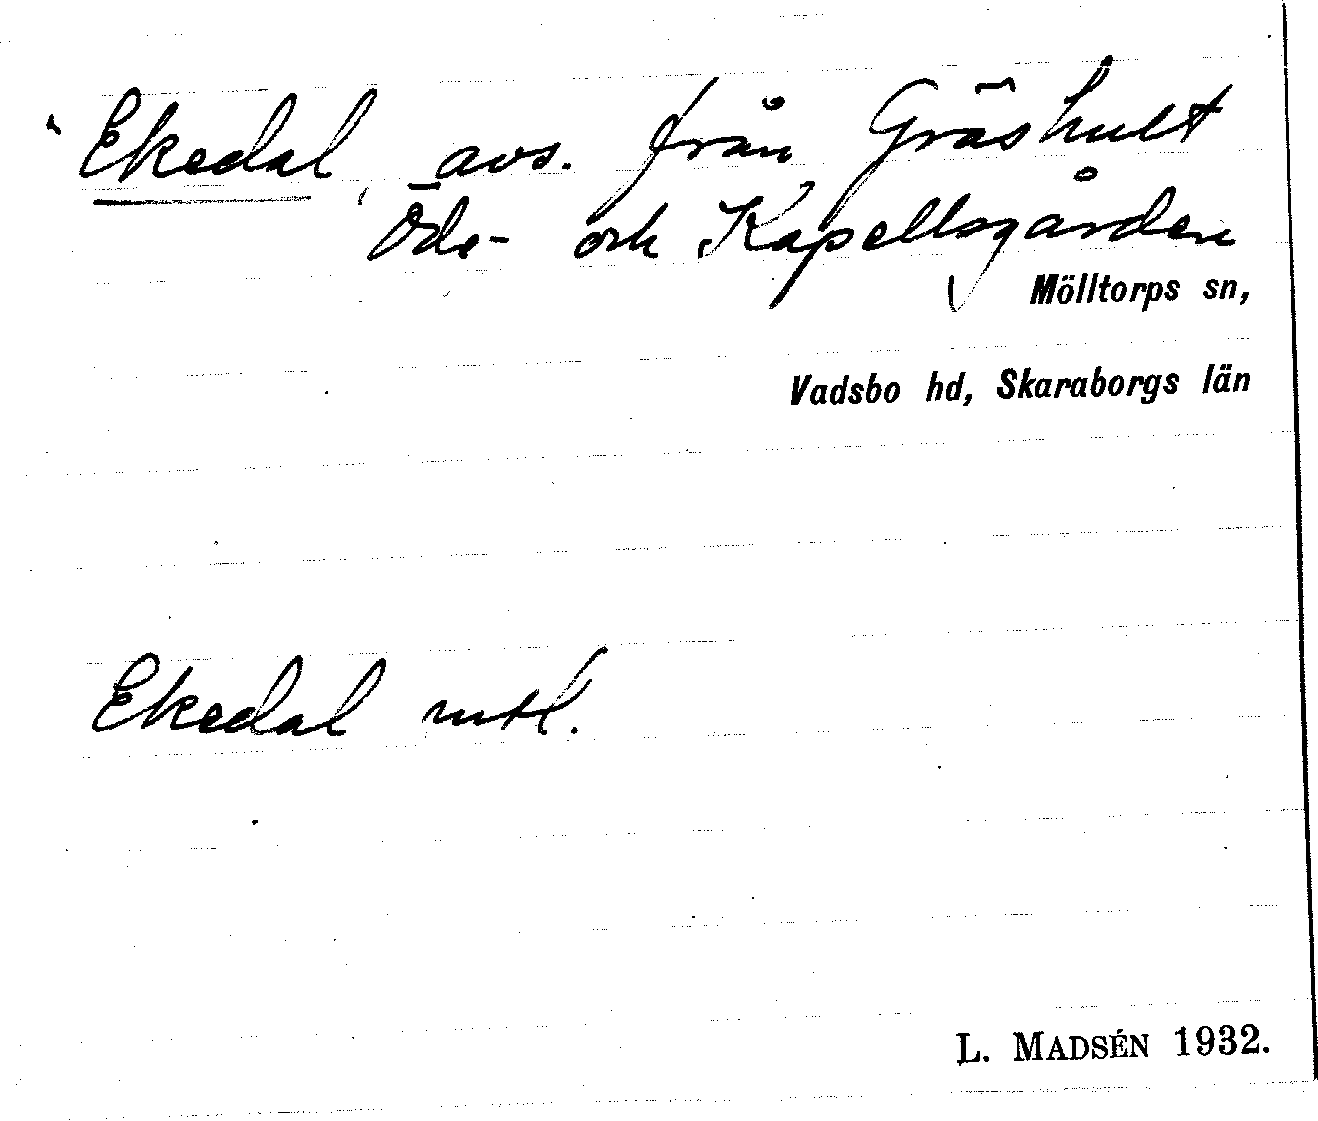 Ekedal, avs. från Gräshult
Öde- och Kapellsgården
Mölltorps sn,
Vadsbo hd, Skaraborgs län
Ekedal mtl.
L. MADSÉN 1932.